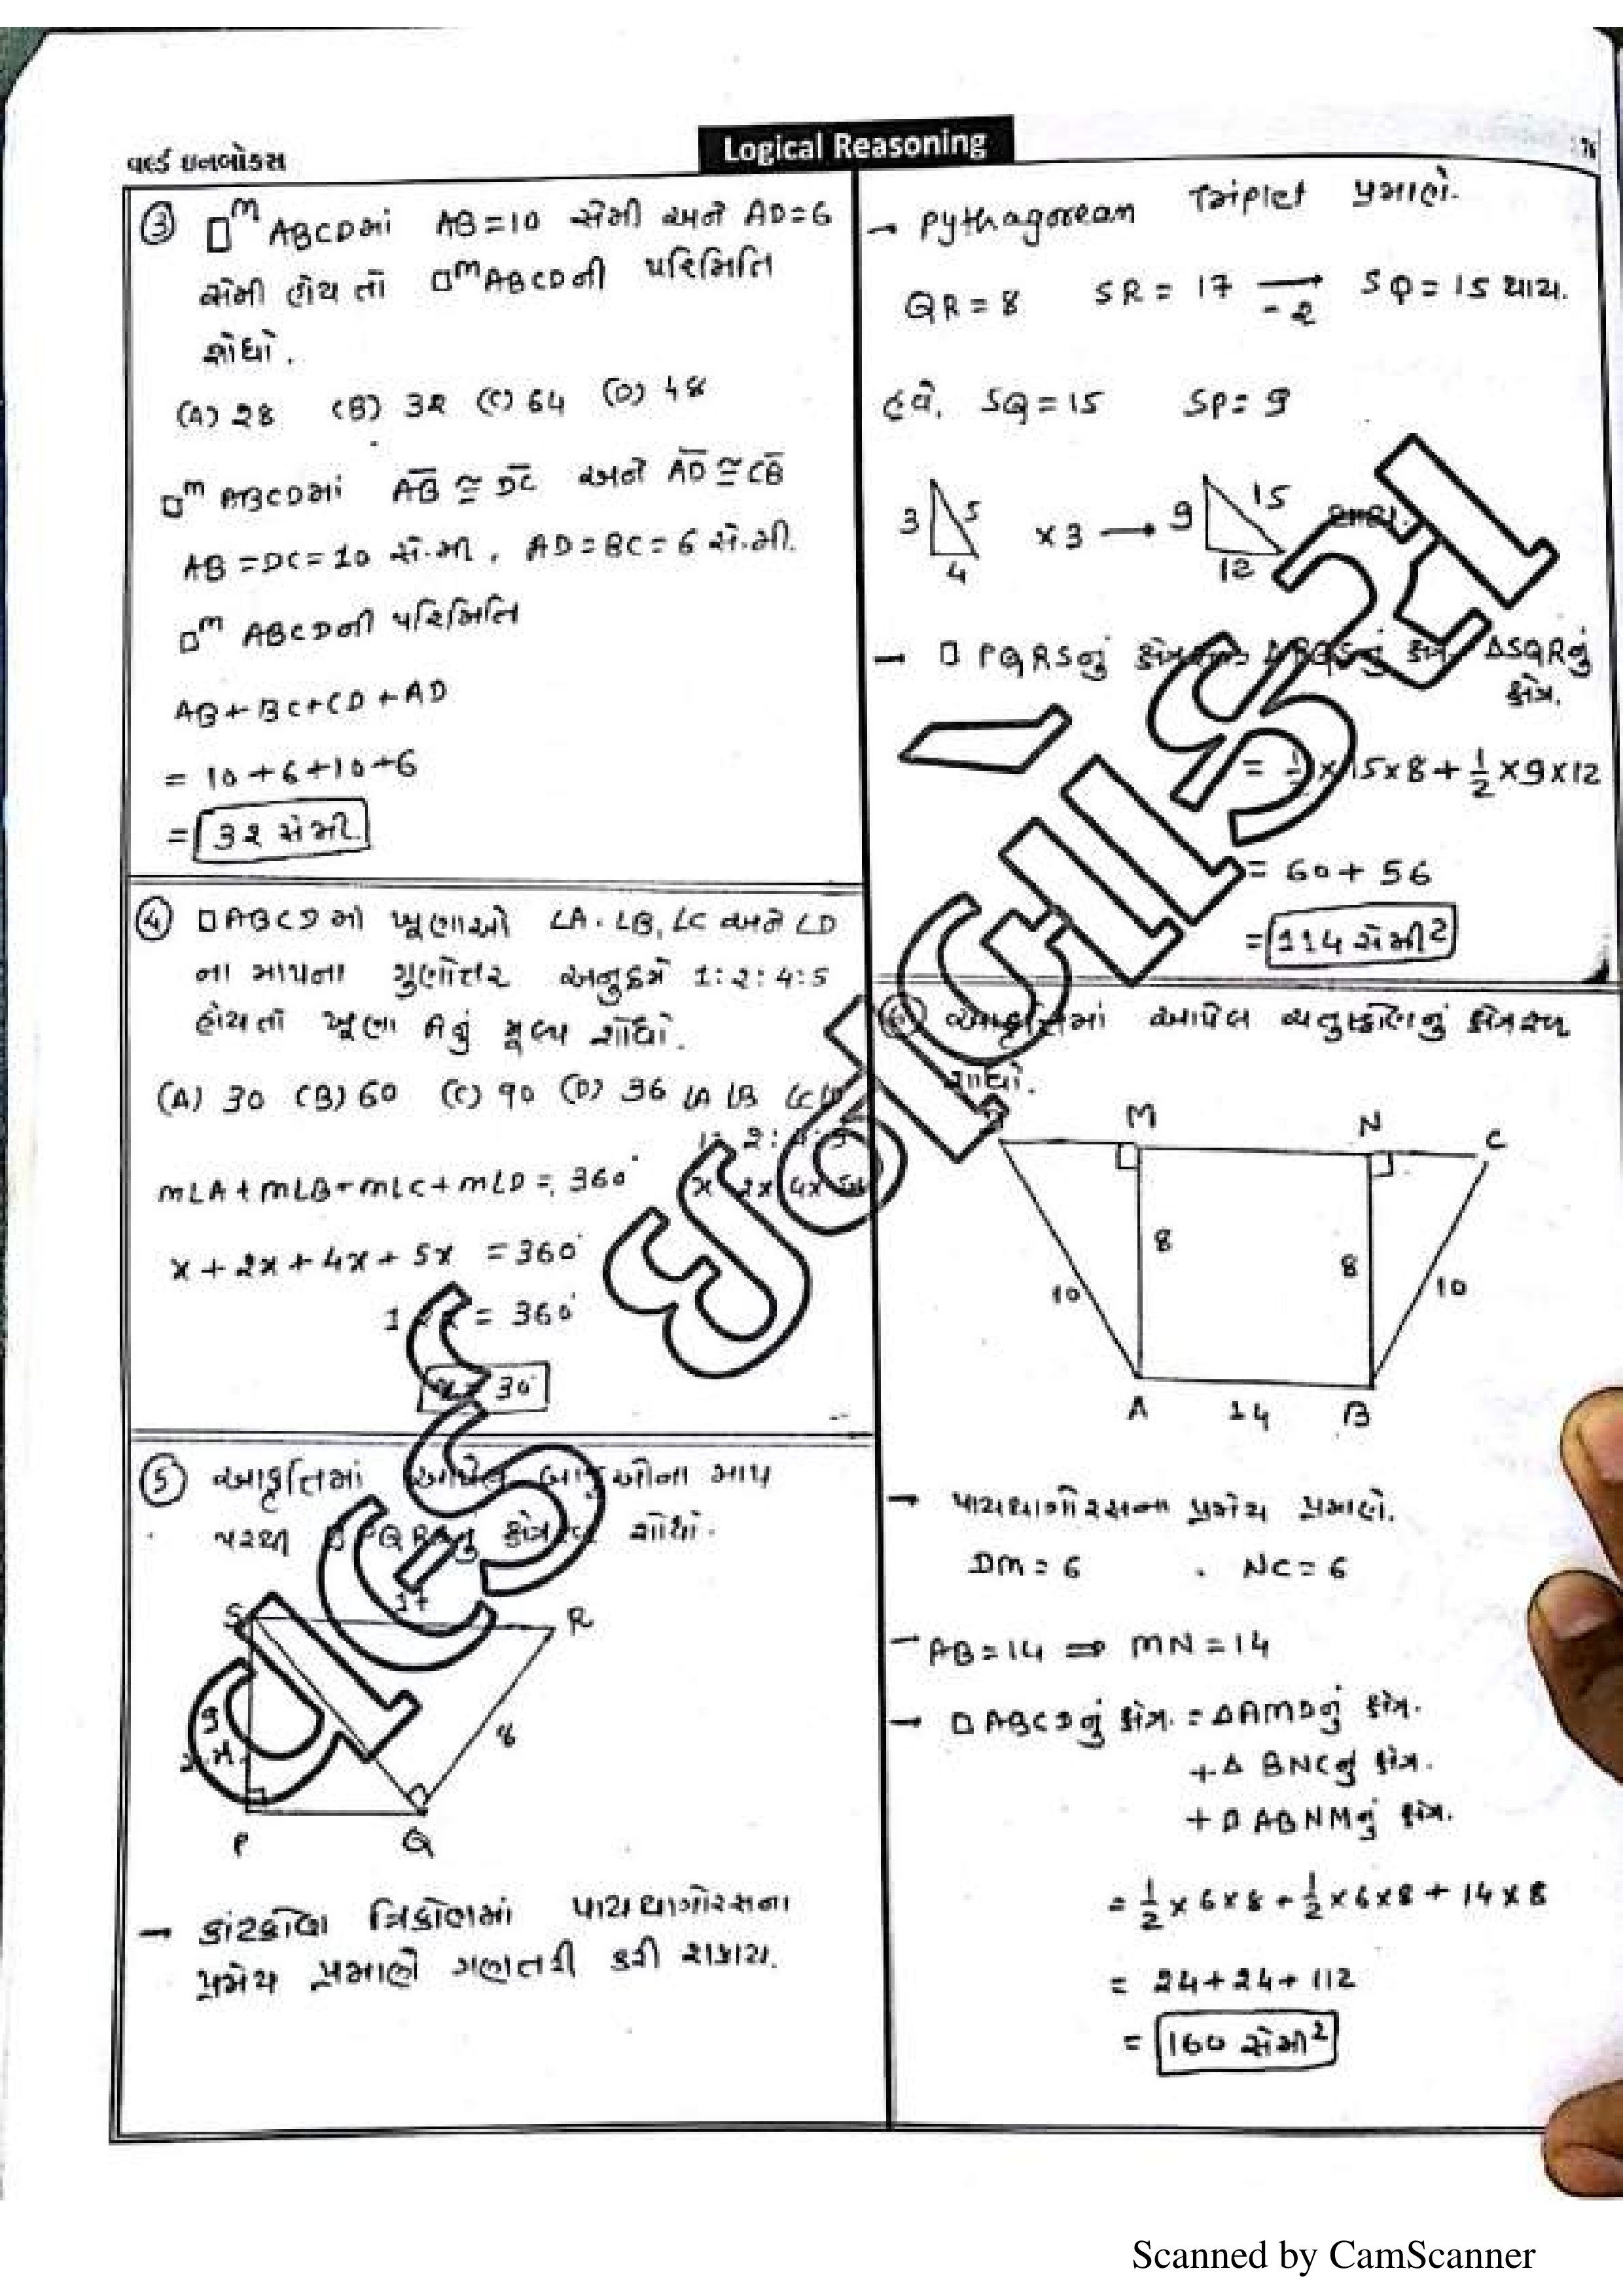 વર્લ્ડ ઇનબોકસ
Logical Reasoning
③ □ᵐ ABCDમાં AB=10 સેમી અને AD=6
સેમી હોય તો □ᵐ ABCDની પરિમિતિ
શોધો.
(A) 28 (B) 32 (C) 64 (D) 48
□ᵐ ABCDમાં A̅B̅ ≅ D̅C̅ અને A̅D̅ ≅ C̅B̅
AB = DC = 10 સે.મી. AD = BC = 6 સે.મી.
□ᵐ ABCDની પરિમિતિ
AB + BC + CD + AD
= 10 + 6 + 10 + 6
= 3૨ સેમી
④ □ABCD માં ખૂણાઓ ∠A, ∠B, ∠C અને ∠D
ના માપના ગુણોત્તર અનુક્રમે 1:2:4:5
હોય તો ખૂણા Aનું મૂલ્ય શોધો.
(A) 30 (B) 60 (C) 90 (D) 36 ∠A ∠B ∠C
m∠A + m∠B + m∠C + m∠D = 360°
x 2x 4x 5x
x + 2x + 4x + 5x = 360°
= 360°
30°
⑤ આકૃતિમાં આપેલ બાજુઓના માપ
પરથી □ PQRSનું શોધો.
17
S R
9
8
P Q
→ કાટકોણ ત્રિકોણમાં પાયથાગોરસના
પ્રમેય પ્રમાણે ગણતરી કરી શકાય.
→ Pythagorean Triplet પ્રમાણે.
QR = 8 SR = 17 → -2 SQ = 15 થાય.
હવે, SQ = 15 SP = 9
3 5 4 × 3 → 9 15 12
→ □ PQRSનું ΔSQRનું
ક્ષેત્ર.
= ½ × 15 × 8 + ½ × 9 × 12
= 60 + 56
= 114 સેમી²
આકૃતિમાં આપેલ ચતુષ્કોણનું ક્ષેત્રફળ
શોધો.
M N C
8 8
10 10
A 14 B
→ પાયથાગોરસના પ્રમેય પ્રમાણે.
DM = 6 . NC = 6
→ AB = 14 ⇒ MN = 14
→ □ ABCDનું ક્ષેત્ર. = ΔAMDનું ક્ષેત્ર.
+ Δ BNCનું ક્ષેત્ર.
+ □ ABNMનું ક્ષેત્ર.
= ½ × 6 × 8 + ½ × 6 × 8 + 14 × 8
= 24 + 24 + 112
= 160 સેમી²
Scanned by CamScanner